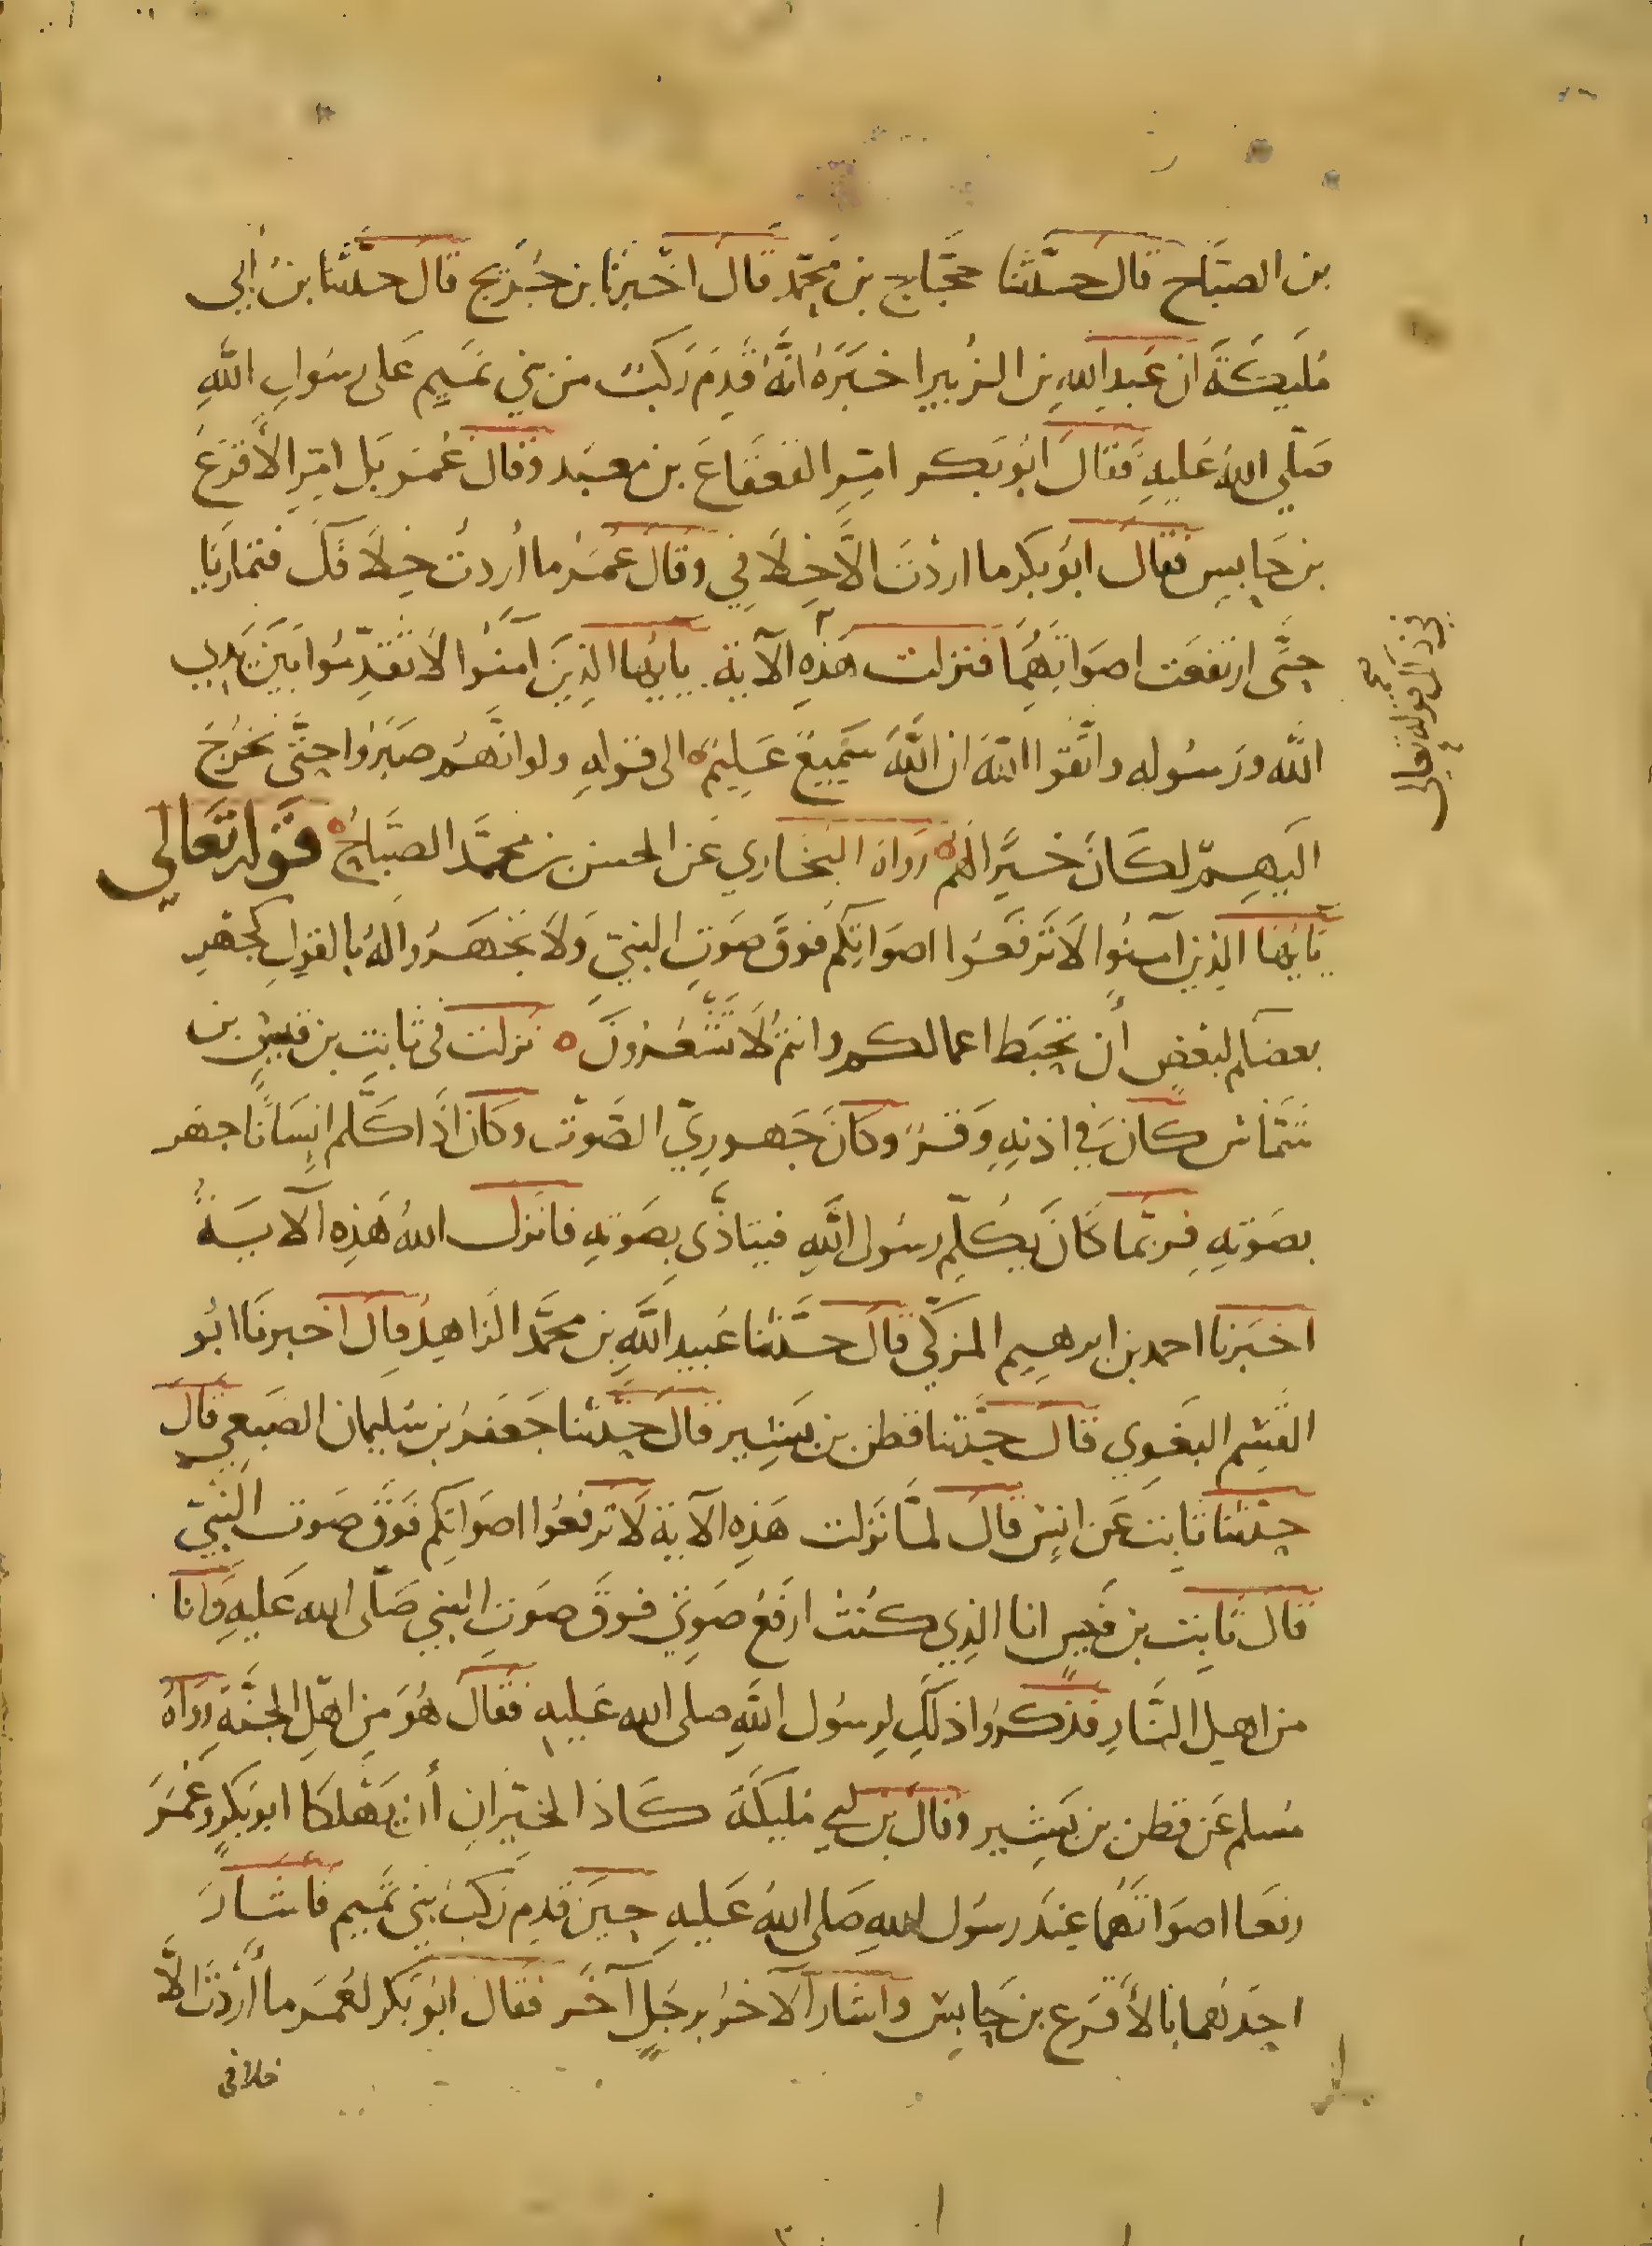 بن الصبَّاح قال حدَّثنا حجَّاج بن محمَّد قال اخبرنا بن جُرَيج قال حدَّثنا بن ابي
مُلَيكَةَ ان عَبد اللهِ بن الزُبير اخبَرَهُ انَّهُ قَدِمَ رَكبٌ من بني تَميِم عَلى رسُولِ اللَّهِ
صَلّى اللهُ عَليهِ فَقالَ ابُو بَكر امِّرِ القَعقَاعَ بن معبَد وقال عُمَر بَل امِّرِ الأَقرَعَ
بن حَابِسِ فقال ابُو بكر ما اردْتَ الاَّ خِلاَفِي وقالَ عُمَر ما اُردتُ خِلاَفَكَ فتمارَيَا
حتَّى ارتفعَت اصوَاتهُمَا فنزلت هَذِهِ الآية يا يُها الذِينَ آمَنوُا لاَ تقَدِّمُوا بَينَ يَدَيِ
اللَّه ورَسُولِهِ واتَّقوا اللهَ ان اللَّهَ سَمِيعٌ عَلِيمٌ الى قولِهِ ولو انَّهُم صبَرُوا حتَّى تخرُجَ
اليهِم لكَانَ خيرًا لهُم رواه البُخاري عَن الحسن بن محمَّد الصبَّاح قوله تعَالى
يا يُها الذِين آمنُوا لاَ تَرفَعوُا اصوَاتكُم فَوقَ صَوتِ النبيّ وَلاَ تجهَرُوا لهُ بالقولِ كجهرِ
بعضكم لبَعضٍ أن تحبَط اعمالكم وانتمُ لاَ تَشعُرُونَ نزلت في ثابت بن قيسِ بن
شَمَّاس كان في اذنهِ وَقرٌ وكانَ جَهوريّ الصَوت وكان اذَا كلَّم انسَانًا جهر
بصَوتهِ فربَّما كَانَ يُكلِّم رسُول اللَّهِ فيتاذَّى بصَوتهِ فانزل اللهُ هَذِهِ الآيَةَ
اخبَرنا احمد بن ابرهيِم المزكي قال حدَّثنا عُبيد اللَّهِ بن محمَّد الزاهِد قال اخبرنا ابُو
القسِم البغَوي قال حدَّثنا قطن بن نسَير قال حدثنا جَعفر بن سُليمان الضبعي قالَ
حدثنا ثابت عَن انسٍ قالَ لمَّا نَزلت هَذِهِ الآية لاَ تَرفَعُوا اصوَاتكم فَوقَ صَوت النبيّ
قال ثابت بن قيس انا الذِي كنُتُ ارفَعُ صَوتي فوقَ صَوتِ النبي صَلّى الله عَليهِ وَانا
من اهل النَّارِ فذكرُوا ذلكَ لرسُول اللَّهِ صلى الله عَليهِ فقالَ هُوَ مِن اهلِ الجنَّةِ رواهُ
مُسلم عَن قطن بن نسَير وقالَ بن ابي مُليكَةَ كادَ الخيّرانِ أن يَهلكا ابو بَكرٍ وعُمَر
رفعَا اصوَاتَهُما عِندَ رسُول اللهِ صَلى اللهُ عَليهِ حِينَ قدِم رَكبُ بني تَميِم فاشارَ
احدُهما بالأَقرَعِ بن حَابِس واشار الآخرُ برجُلٍ آخر فقال ابُو بَكر لعُمَر ما أردْتَ الاَّ
خلافي
في ذلك قوله تعالى
صح